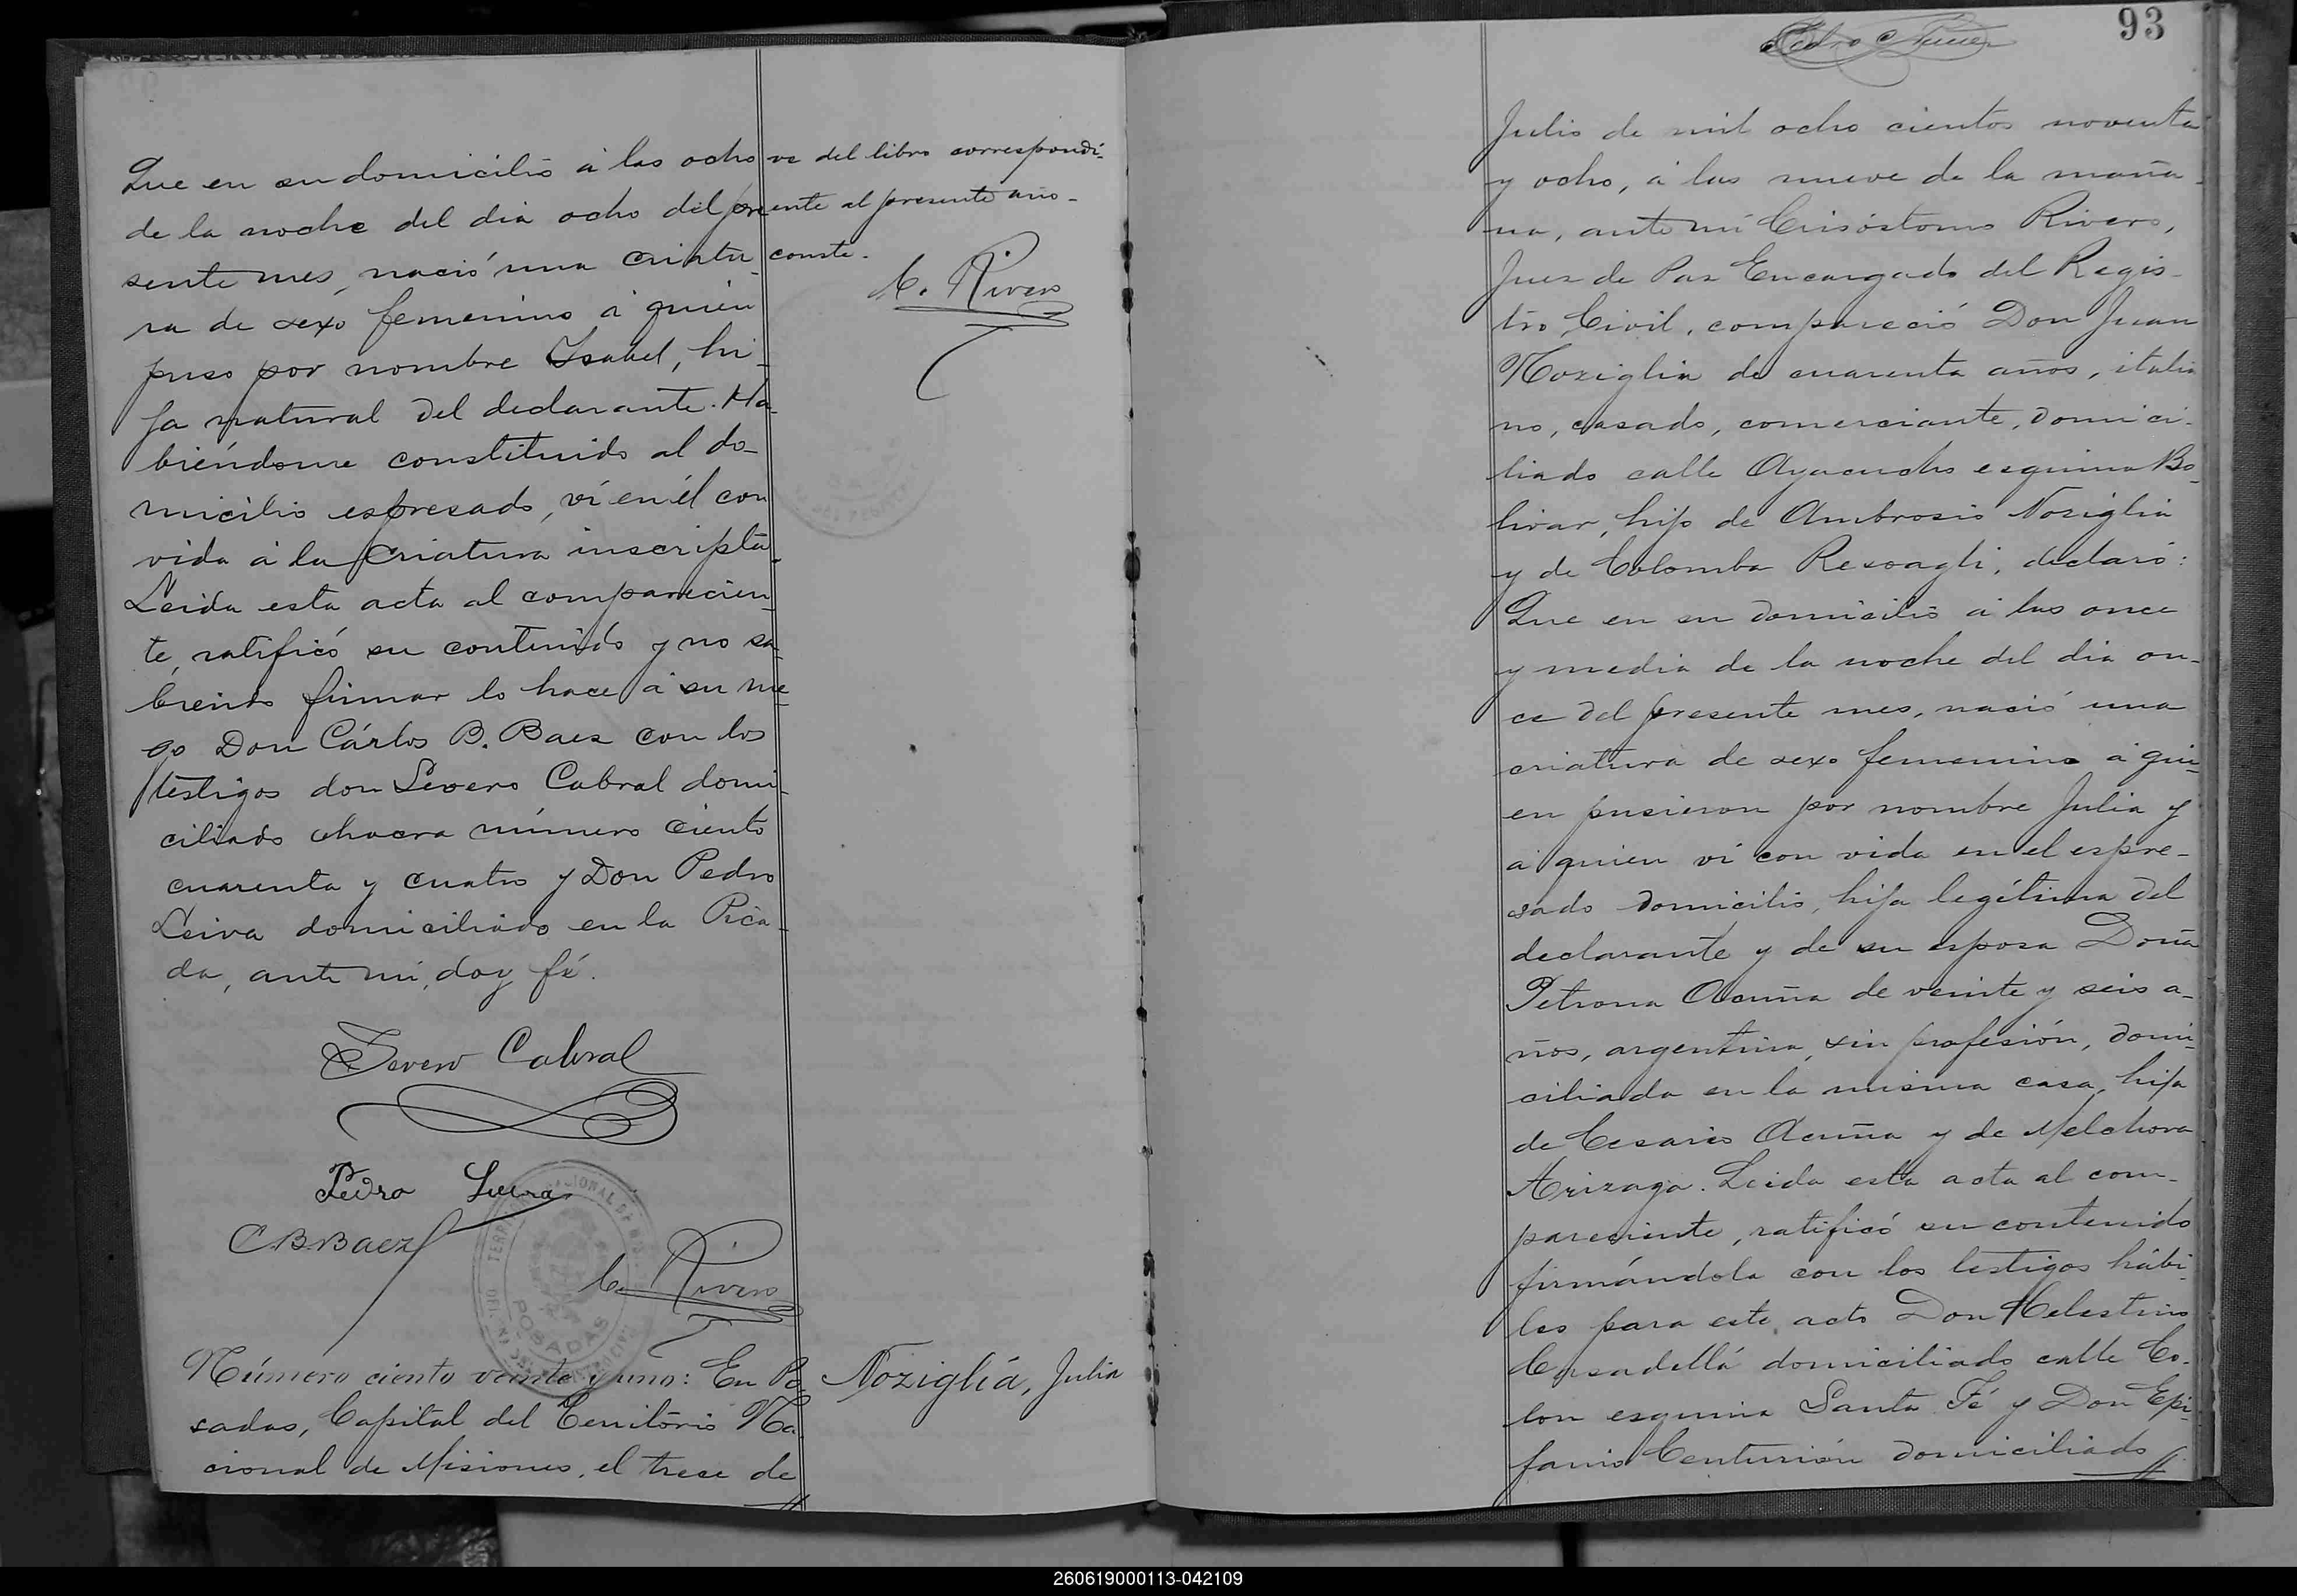 Que en su domicilio á las ocho
de la noche del dia ocho del pre
sente mes, nació una criatu-
ra de sexo femenino á quien
puso por nombre Ysabel, hi-
ja natural del declarante. Ha-
biéndome constituido al do-
micilio espresado, ví en él con
vida á la criatura inscripta.
Leida esta acta al comparecien-
te, ratificó su contenido y no sa-
biendo firmar lo hace á su rue-
go Don Cárlos B. Baez con los
testigos don Severo Cabral domi-
ciliado chacra número ciento
cuarenta y cuatro y Don Pedro
Leiva domiciliado en la Pica-
da, ante mí, doy fé.
Severo Cabral
Pedro Leiva
C B Baez
C. Rivero
POSADAS
Número ciento veinte y uno: En Po-
sadas, Capital del Territorio Na-
cional de Misiones, el trece de
ve del libro correspondi-
ente al presente año-
conste.
C. Rivero
Noziglia, Julia
93
Julio de mil ocho cientos noventa
y ocho, á las nueve de la maña-
na, ante mí Crisóstomo Rivero,
Juez de Paz Encargado del Regis-
tro Civil, compareció Don Juan
Noziglia de cuarenta años, italia
no, casado, comerciante, domici-
liado calle Ayacucho esquina Bo-
livar, hijo de Ambrosio Noziglia
y de Colomba Resoagli, declaró:
Que en su domicilio á las once
y media de la noche del dia on-
ce del presente mes, nació una
criatura de sexo femenino á qui-
en pusieron por nombre Julia y
á quien ví con vida en el espre-
sado domicilio, hija legítima del
declarante y de su esposa Doña
Petrona Acuña de veinte y seis a-
ños, argentina, sin profesión, domi-
ciliada en la misma casa, hija
de Cesario Acuña y de Melchora
Arizaga. Leida esta acta al com-
pareciente, ratificó su contenido
firmándola con los testigos hábi-
les para este acto Don Celestino
domiciliado calle Co-
lon esquina Santa Fé y Don Epi-
fanio Centurión domiciliado